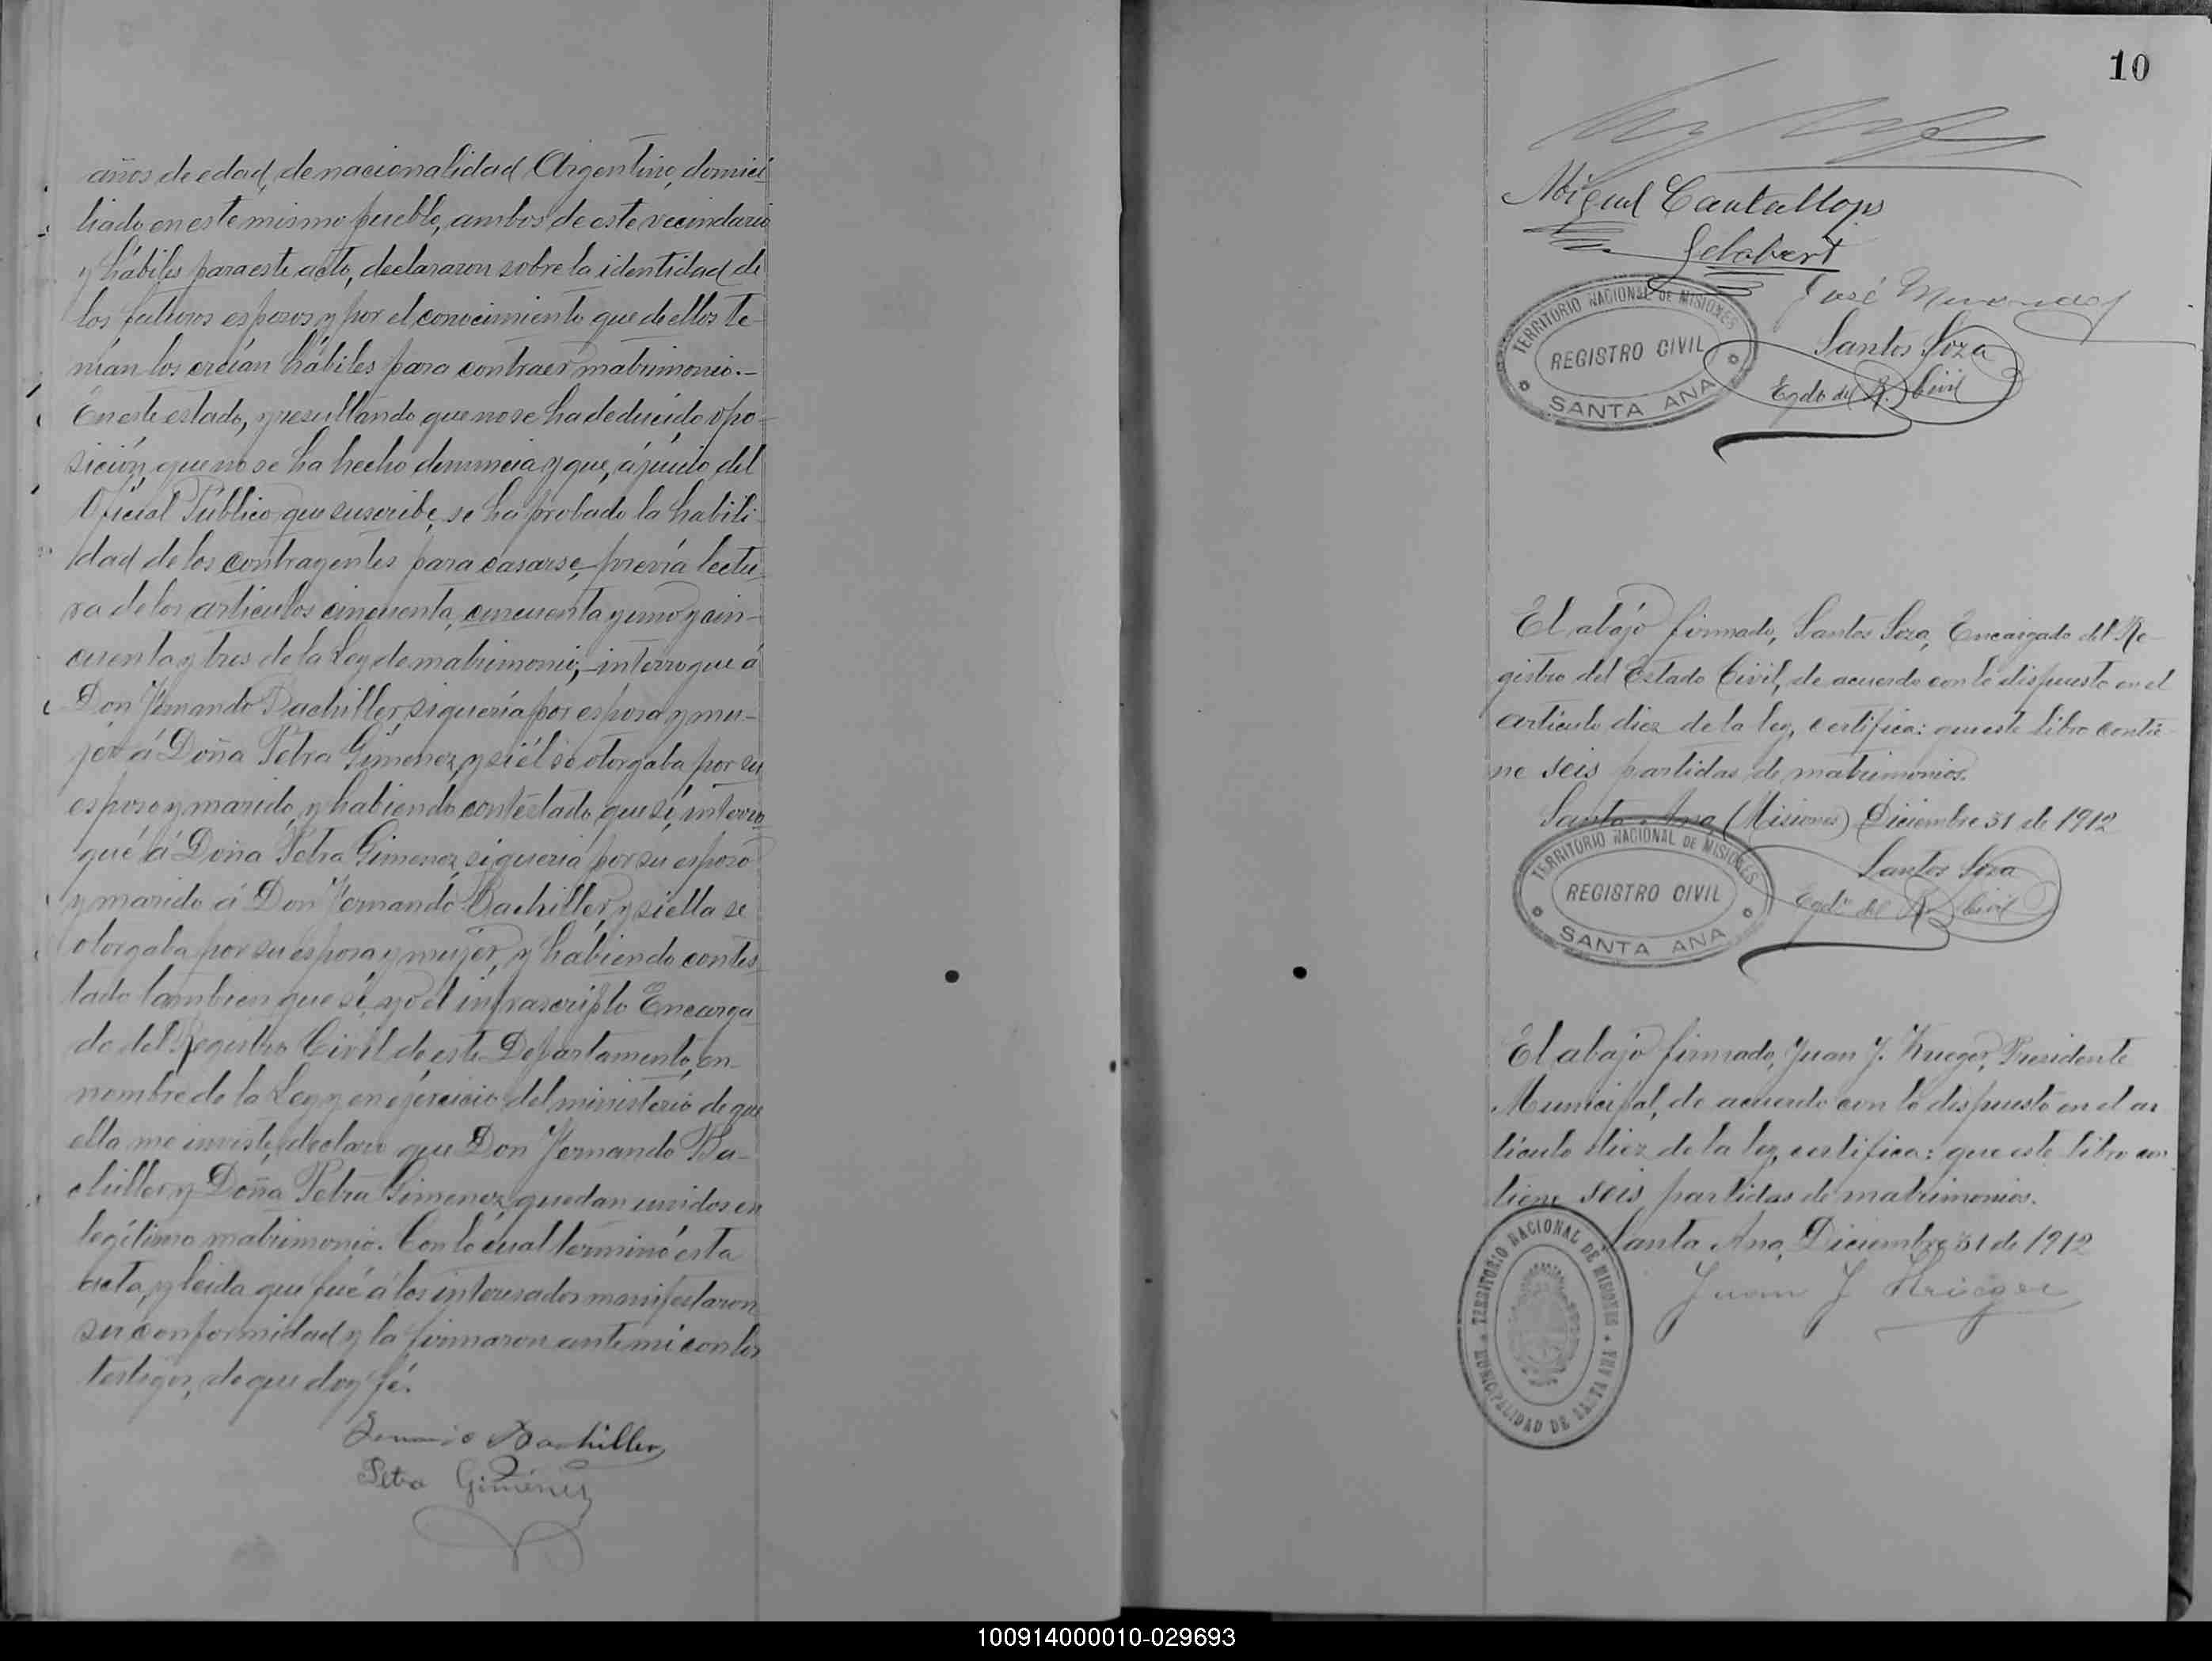 años de edad, de nacionalidad Argentino, domici
liado en este mismo pueblo, ambos de este vecindario
y hábiles para este acto, declararon sobre la identidad de
los futuros esposos y por el conocimiento que de ellos te-
nían los creían hábiles para contraer matrimonio.-
En este estado, y resultando que no se ha deducido opo-
sición, que no se ha hecho denuncia y que, á juicio del
Oficial Público que suscribe, se ha probado la habili-
dad de los contrayentes para casarse, previa lectu-
ra de los artículos cincuenta, cincuenta y uno y cin-
cuenta y tres de la Ley de matrimonio, interrogué á
Don Fernando Bachiller, si quería por esposa y mu-
jer á Doña Petra Gimenez, y si él se otorgaba por su
esposo y marido, y habiendo contestado que sí, interro
gué á Doña Petra Gimenez, si quería por su esposo
y marido á Don Fernando Bachiller, y si ella se
otorgaba por su esposa y mujer, y habiendo contes
tado tambien que sí, yo el infrascripto Encarga
do del Registro Civil de este Departamento, en
nombre de la Ley y en ejercicio del ministerio de que
ella me inviste, declaro que Don Fernando Ba-
chiller y Doña Petra Gimenez, quedan unidos en
legítimo matrimonio. Con lo cual terminó esta
acta, y leida que fué á los interesados manifestaron
su conformidad y la firmaron ante mí con los
testigos, de que doy fé.
Bachiller
Petra Gimenez
10
Miguel Cantallops
Gelabert
José
TERRITORIO NACIONAL DE MISIONES
REGISTRO CIVIL
SANTA ANA
Santos Soza
Egdo del R. Civil
El abajo firmado, Santos Soza, Encargado del Re-
gistro del Estado Civil, de acuerdo con lo dispuesto en el
artículo diez de la ley, certifica: que este libro contie-
ne seis partidas de matrimonios.
Santa Ana (Misiones) Diciembre 31 de 1912
TERRITORIO NACIONAL DE MISIONES
REGISTRO CIVIL
SANTA ANA
Santos Soza
Egdo del R. Civil
El abajo firmado, Juan J. Krueger, Presidente
Municipal, de acuerdo con lo dispuesto en el ar
tículo diez de la ley, certifica: que este libro con
tiene seis partidas de matrimonios.
Santa Ana, Diciembre 31 de 1912
Juan J Krieger
TERRITORIO NACIONAL DE MISIONES
MUNICIPALIDAD DE SANTA ANA
100914000010-029693